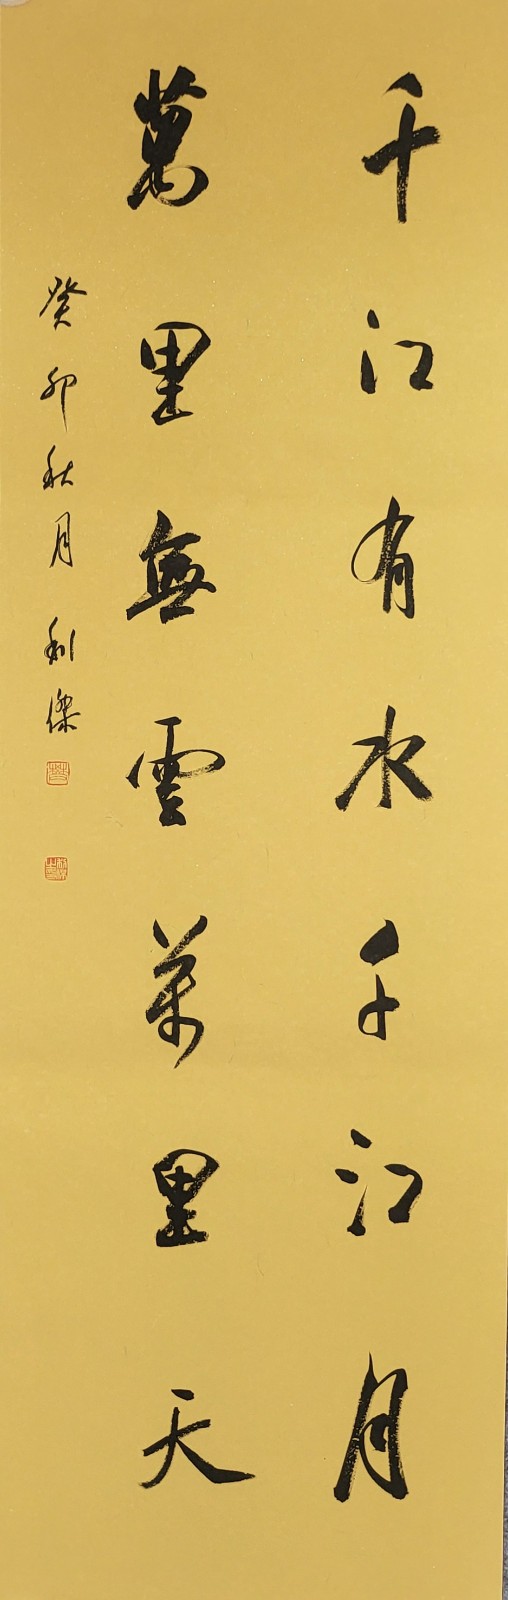 千江有水千江月
萬里無雲萬里天
癸卯秋月 利傑